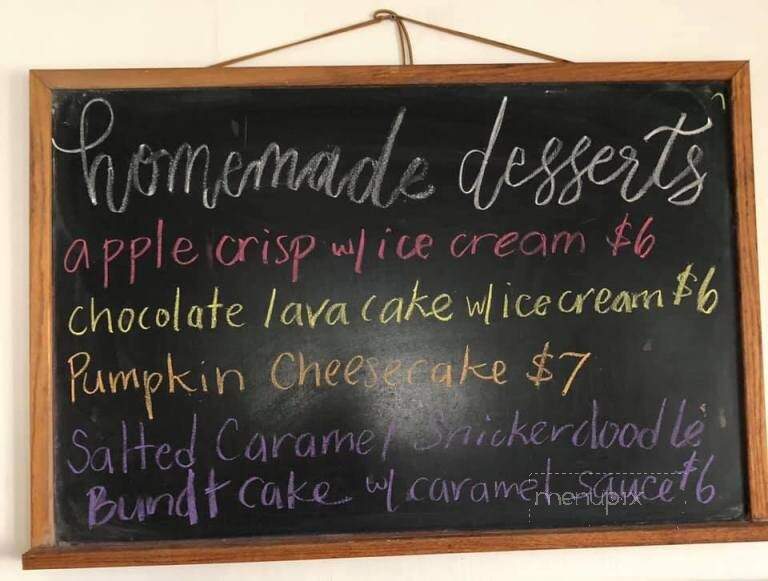 homemade desserts
apple crisp w/ ice cream $6
chocolate lava cake w/ ice cream $6
Pumpkin Cheesecake $7
Salted Caramel Snickerdoodle
Bundt Cake w/ caramel sauce $6
menupix